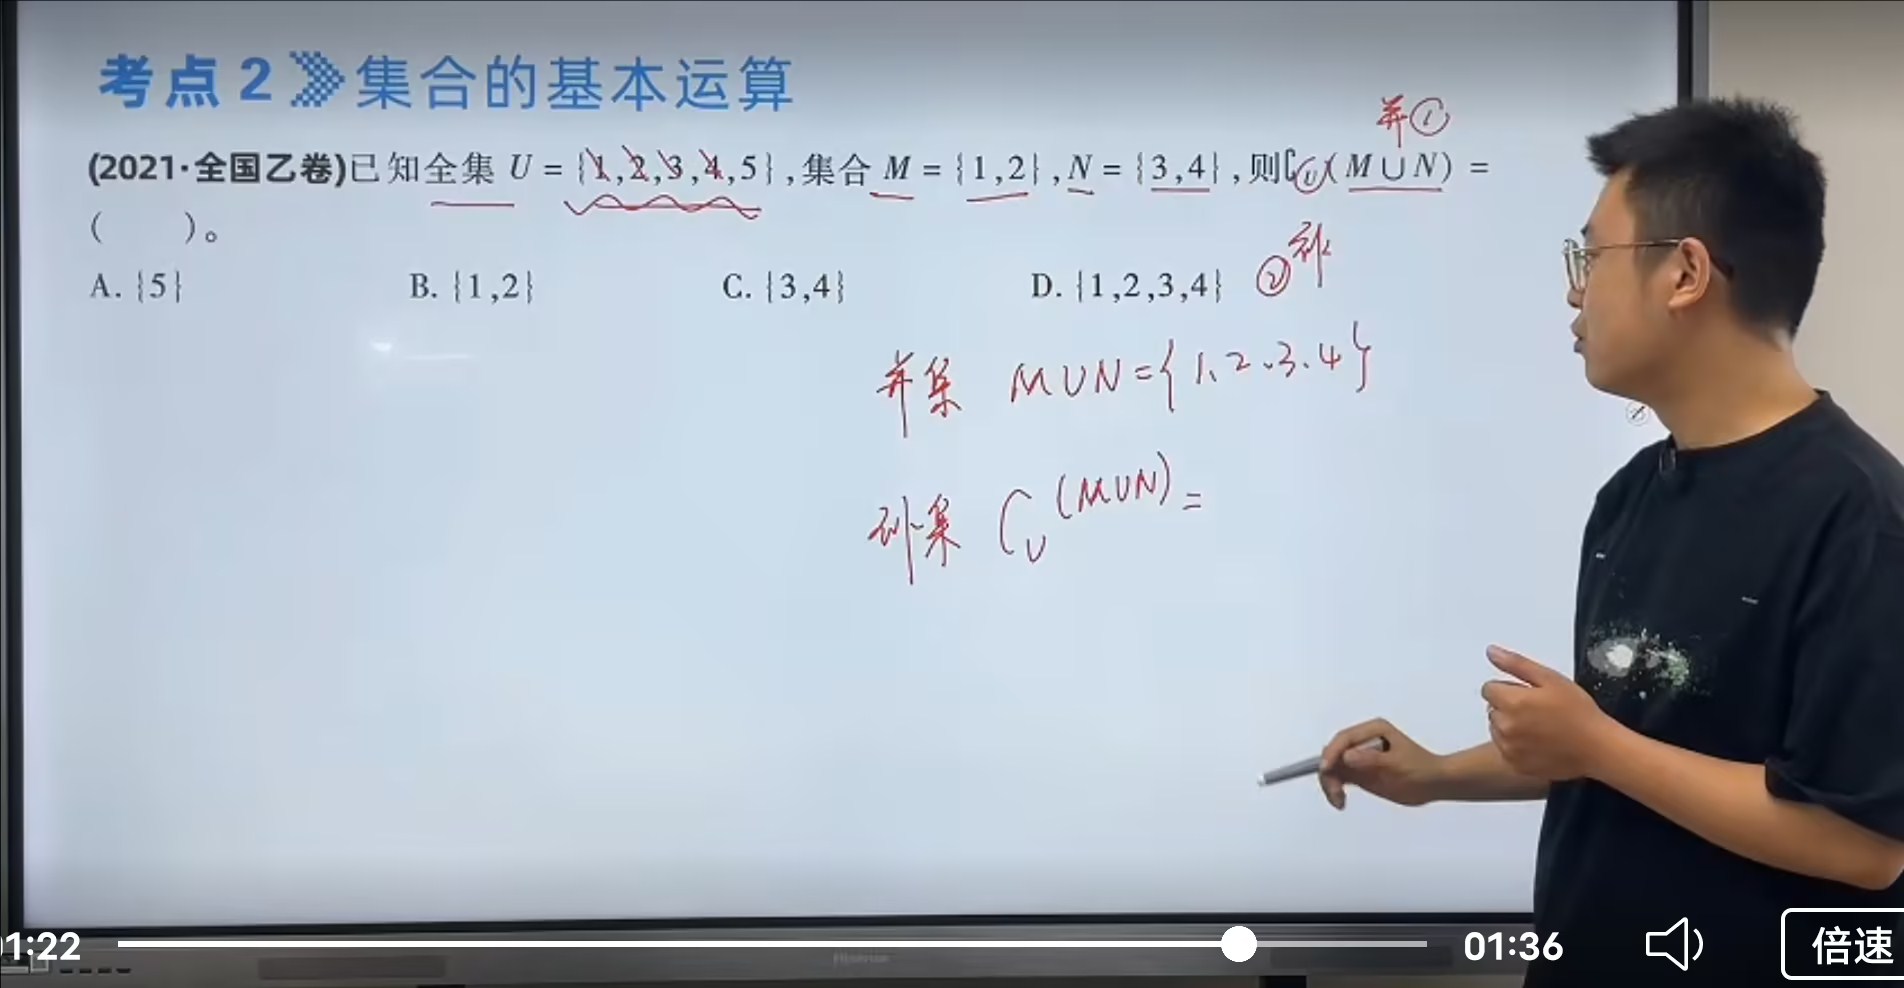 考点2 集合的基本运算
并①
(2021·全国乙卷)已知全集 U = {1,2,3,4,5},集合 M = {1,2},N = {3,4},则∁U(M∪N) =
(    )。
②补
A. {5}  B. {1,2}  C. {3,4}  D. {1,2,3,4}
并集 M∪N={1、2、3、4}
补集 ∁U(M∪N)=
01:22
01:36
倍速